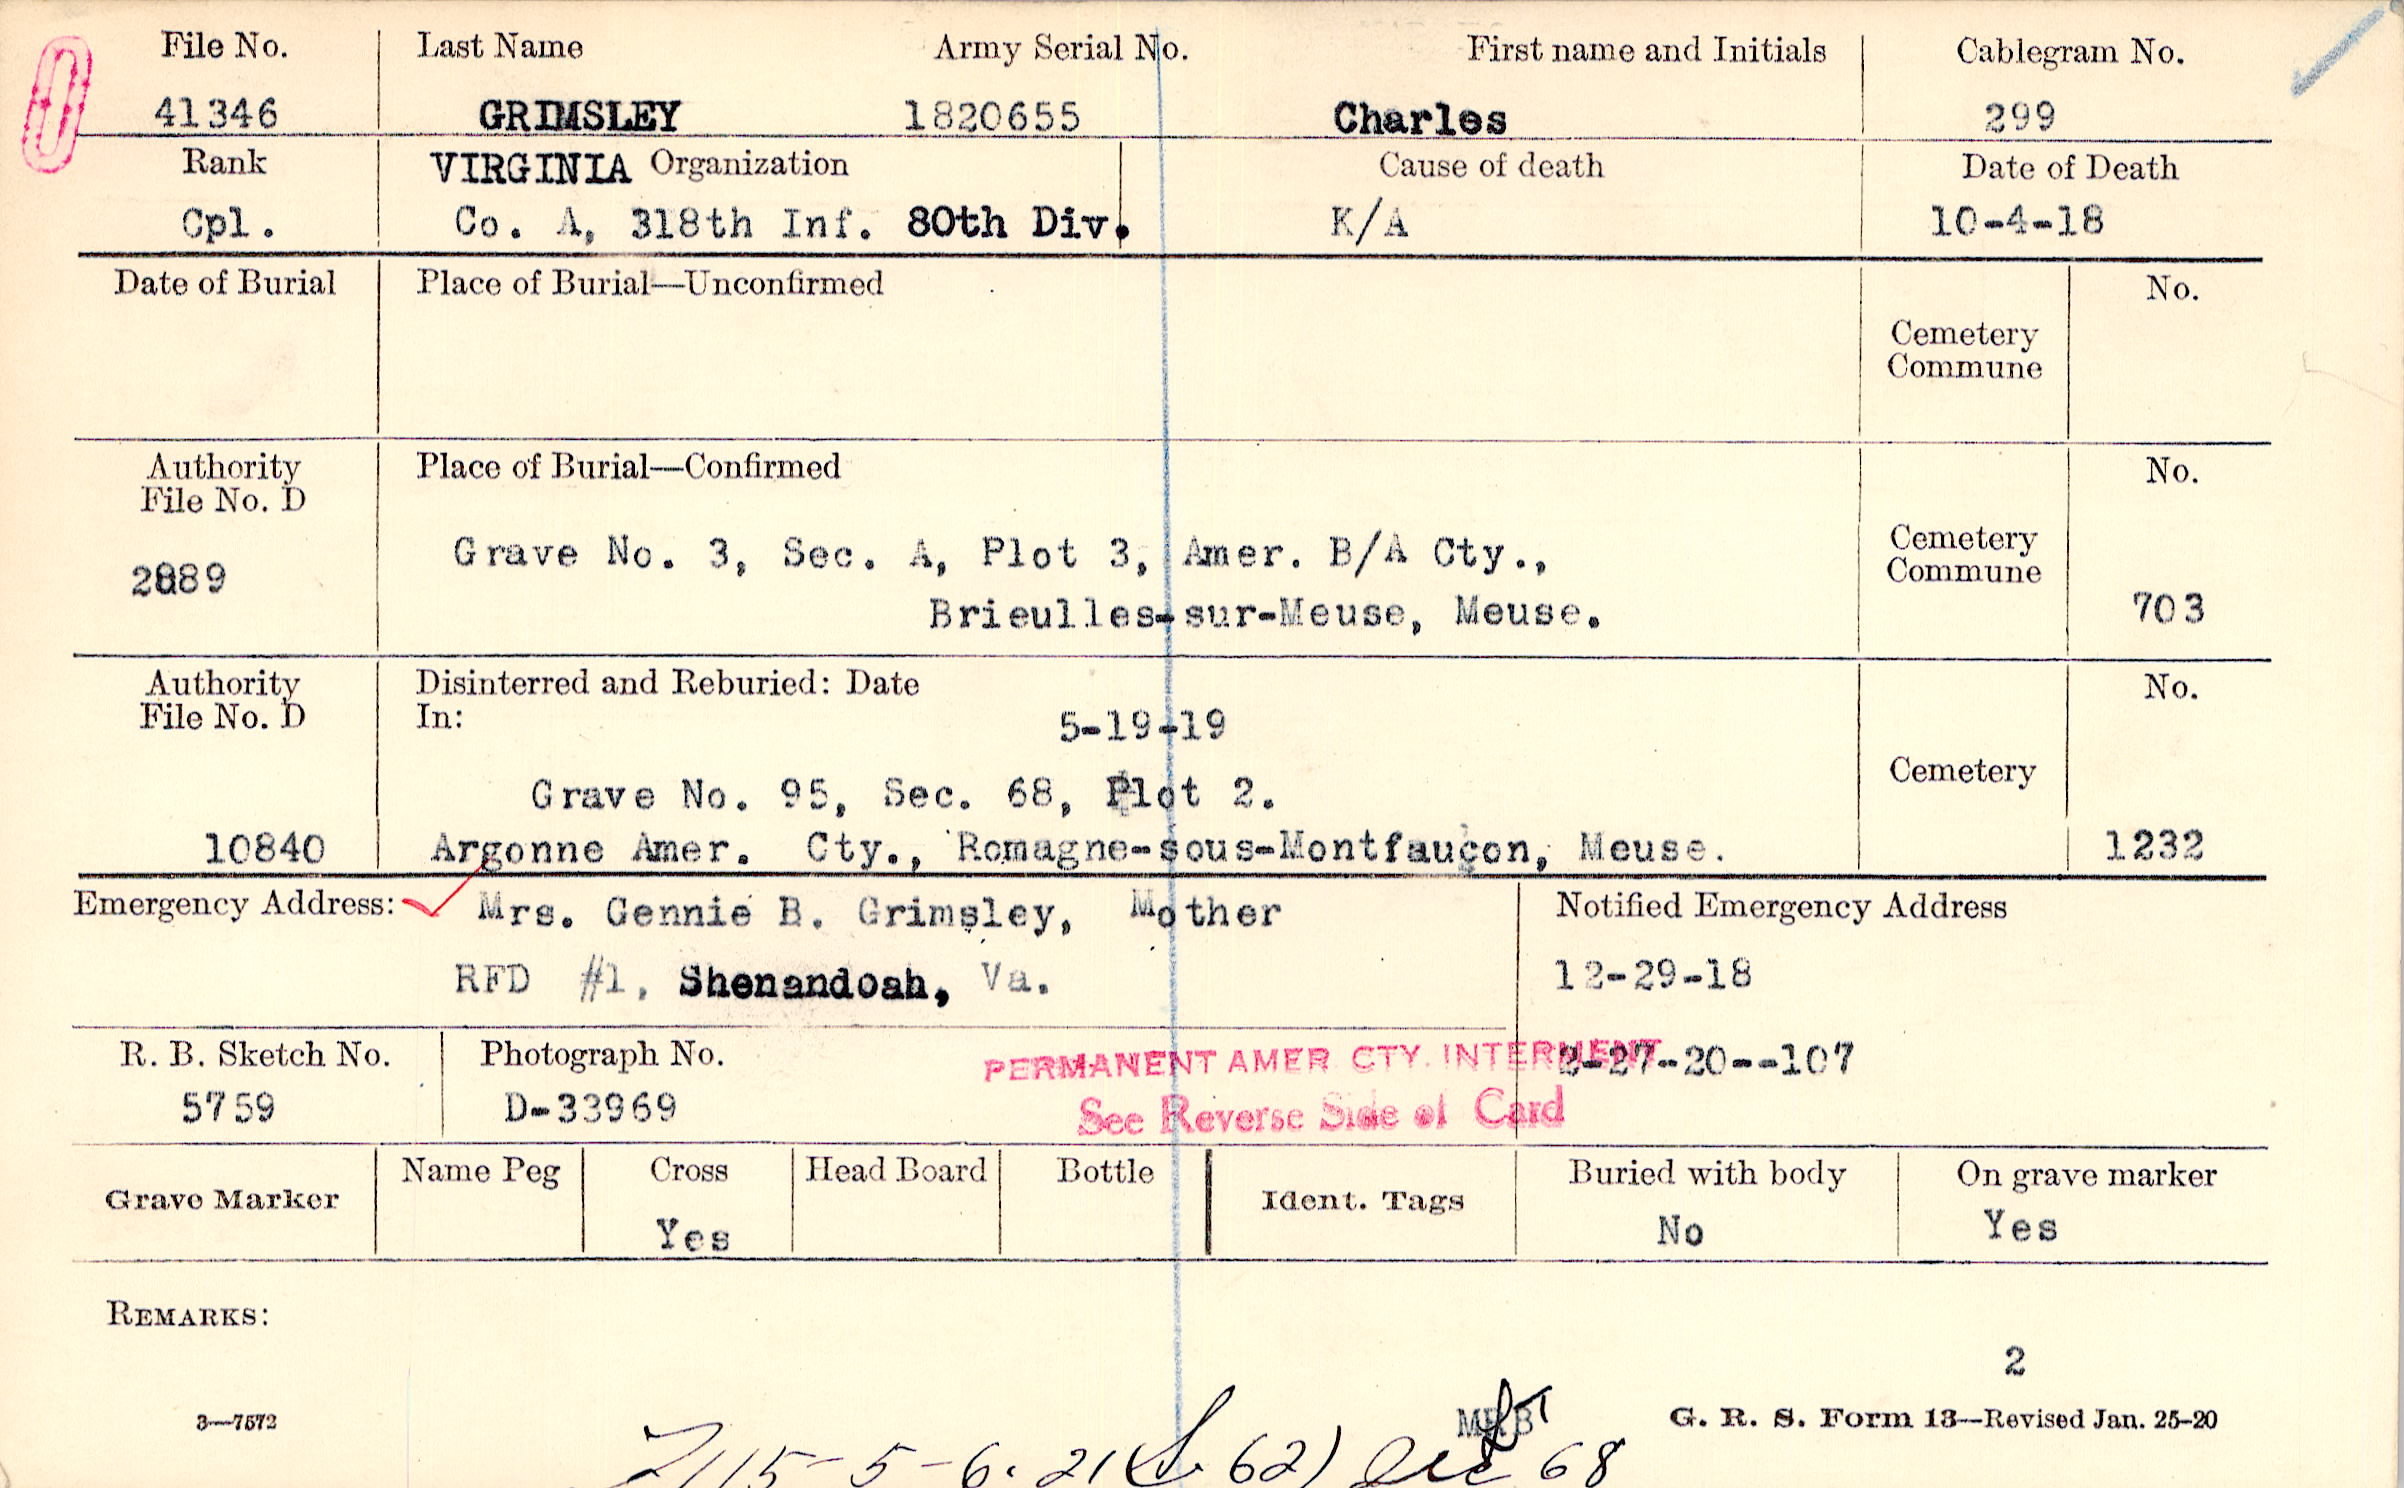 File No. Last Name Army Serial No. First name and Initials Cablegram No.
41346 GRIMSLEY 1820655 Charles 299
Rank VIRGINIA Organization Cause of death Date of Death
Cpl. Co. A, 318th Inf. 80th Div. K/A 10-4-18
Date of Burial Place of Burial—Unconfirmed No.
Cemetery
Commune
Authority Place of Burial—Confirmed No.
File No. D
Grave No. 3, Sec. A, Plot 3, Amer. B/A Cty., Cemetery
Commune
2889
Brieulles-sur-Meuse, Meuse. 703
Authority Disinterred and Reburied: Date No.
File No. D In: 5-19-19
Cemetery
Grave No. 95, Sec. 68, Plot 2.
10840 Argonne Amer. Cty., Romagne-sous-Montfauçon, Meuse. 1232
Emergency Address: Mrs. Gennie B. Grimsley, Mother Notified Emergency Address
RFD #1, Shenandoah, Va. 12-29-18
R. B. Sketch No. Photograph No. PERMANENT AMER CTY. INTERMENT 2-27-20--107
5759 D-33969 See Reverse Side of Card
Grave Marker Name Peg Cross Head Board Bottle Ident. Tags Buried with body On grave marker
Yes No Yes
REMARKS:
2
3—7572 G. R. S. Form 13—Revised Jan. 25-20
5-6. 21 62) 68